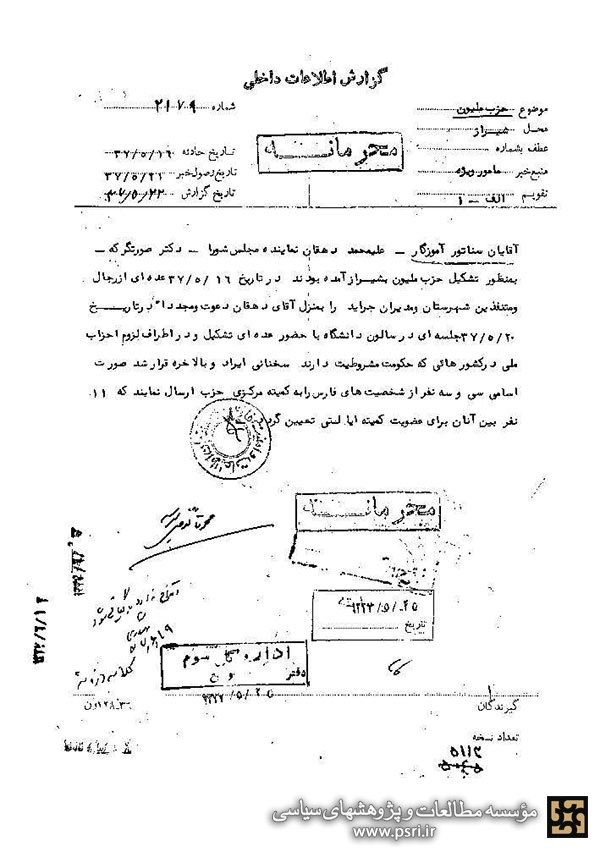 گزارش اطلاعات داخلی
موضوع حزب ملیون
شماره ۲۱۷۹
محل شیراز
عطف بشماره
محرمانه
تاریخ حادثه ۳۷/۵/۱۶
منبع خبر مامور ویژه
تاریخ وصول خبر ۳۷/۵/۲۱
تقویم الف - ۱
تاریخ گزارش ۳۷/۵/۲۲
آقایان سناتور آموزگار - علیمحمد دهقان نماینده مجلس شورا - دکتر صورتگر که -
بمنظور تشکیل حزب ملیون بشیراز آمده بودند در تاریخ ۳۷/۵/۱۶ عده ای از رجال
ومتنفذین شهرستان ومدیران جراید را بمنزل آقای دهقان دعوت ومجددا در تاریخ
۳۷/۵/۲۰ جلسه ای در سالون دانشگاه با حضور عده ای تشکیل و در اطراف لزوم احزاب
ملی در کشور هائی که حکومت مشروطیت دارند سخنانی ایراد و بالاخره قرار شد صورت
اسامی سی و سه نفر از شخصیت های فارس را به کمیته مرکزی حزب ارسال نمایند که ۱۱
نفر بین آنان برای عضویت کمیته ایالتی تعیین گردد
محرمانه
تاریخ
اداره کل سوم
دفتر
گیرندگان
تعداد نسخه
۵۱۱۲
مؤسسه مطالعات و پژوهشهای سیاسی
www.psri.ir